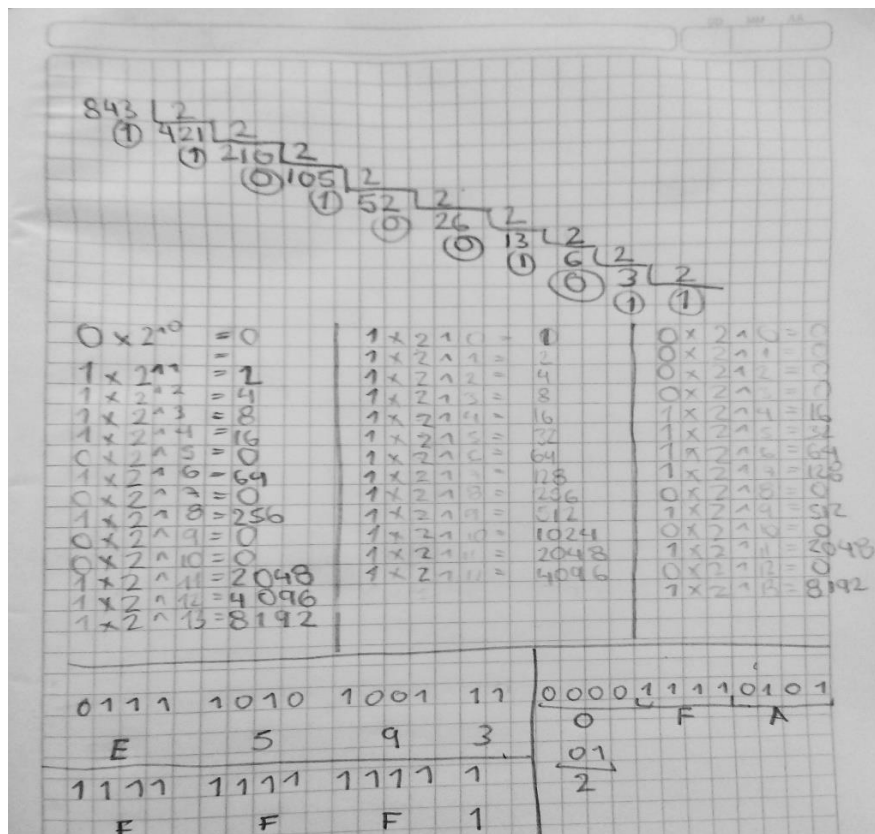 843 2
1 421 2
1 210 2
0 105 2
1 52 2
0 26 2
0 13 2
1 6 2
0 3 2
1 1
0 x 2^0 = 0
=
1 x 2^1 = 2
1 x 2^2 = 4
1 x 2^3 = 8
1 x 2^4 = 16
0 x 2^5 = 0
1 x 2^6 = 64
0 x 2^7 = 0
1 x 2^8 = 256
0 x 2^9 = 0
0 x 2^10 = 0
1 x 2^11 = 2048
1 x 2^12 = 4096
1 x 2^13 = 8192
1 x 2^0 = 1
1 x 2^1 = 2
1 x 2^2 = 4
1 x 2^3 = 8
1 x 2^4 = 16
1 x 2^5 = 32
1 x 2^6 = 64
1 x 2^ = 128
1 x 2^8 = 256
1 x 2^9 = 512
1 x 2^10 = 1024
1 x 2^11 = 2048
1 x 2^ = 4096
0 x 2^0 = 0
0 x 2^1 = 0
0 x 2^2 = 0
0 x 2^ = 0
1 x 2^4 = 16
1 x 2^5 = 32
1 x 2^6 = 64
1 x 2^ = 128
0 x 2^8 = 0
1 x 2^9 = 512
0 x 2^10 = 0
1 x 2^11 = 2048
0 x 2^12 = 0
1 x 2^13 = 8192
0111 1010 1001 11
E 5 9 3
1111 1111 1111 1
F F F 1
000011110101
0 F A
01
2